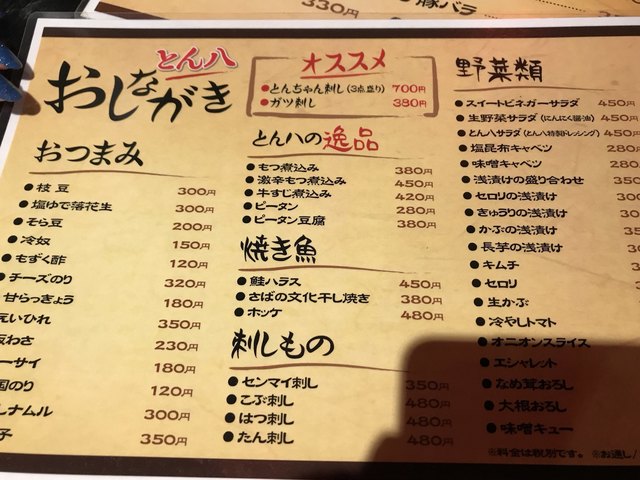 330円
豚バラ
とん八
おしながき
おつまみ
枝豆 300円
塩ゆで落花生 300円
そら豆 200円
冷奴 150円
もずく酢 120円
チーズのり 320円
甘らっきょう 180円
えいひれ 350円
わさ 230円
ーサイ 180円
国のり 120円
ナムル 300円
子 350円
オススメ
とんちゃん刺し(3点盛り) 700円
ガツ刺し 380円
とん八の逸品
もつ煮込み 380円
激辛もつ煮込み 450円
牛すじ煮込み 420円
ピータン 280円
ピータン豆腐 380円
焼き魚
鮭ハラス 450円
さばの文化干し焼き 380円
ホッケ 480円
刺しもの
センマイ刺し 350円
こぶ刺し 480円
はつ刺し 480円
たん刺し 480円
野菜類
スイートビネガーサラダ 450円
生野菜サラダ(にんにく醤油) 450円
とん八サラダ(とん八特製ドレッシング) 450円
塩昆布キャベツ 280
味噌キャベツ 280
浅漬けの盛り合わせ 350
セロリの浅漬け 300
きゅうりの浅漬け 300
かぶの浅漬け
長芋の浅漬け
キムチ
セロリ
生かぶ
冷やしトマト
オニオンスライス
エシャレット
なめ茸おろし
大根おろし
味噌キュー
※料金は税別です。 ※お通し/